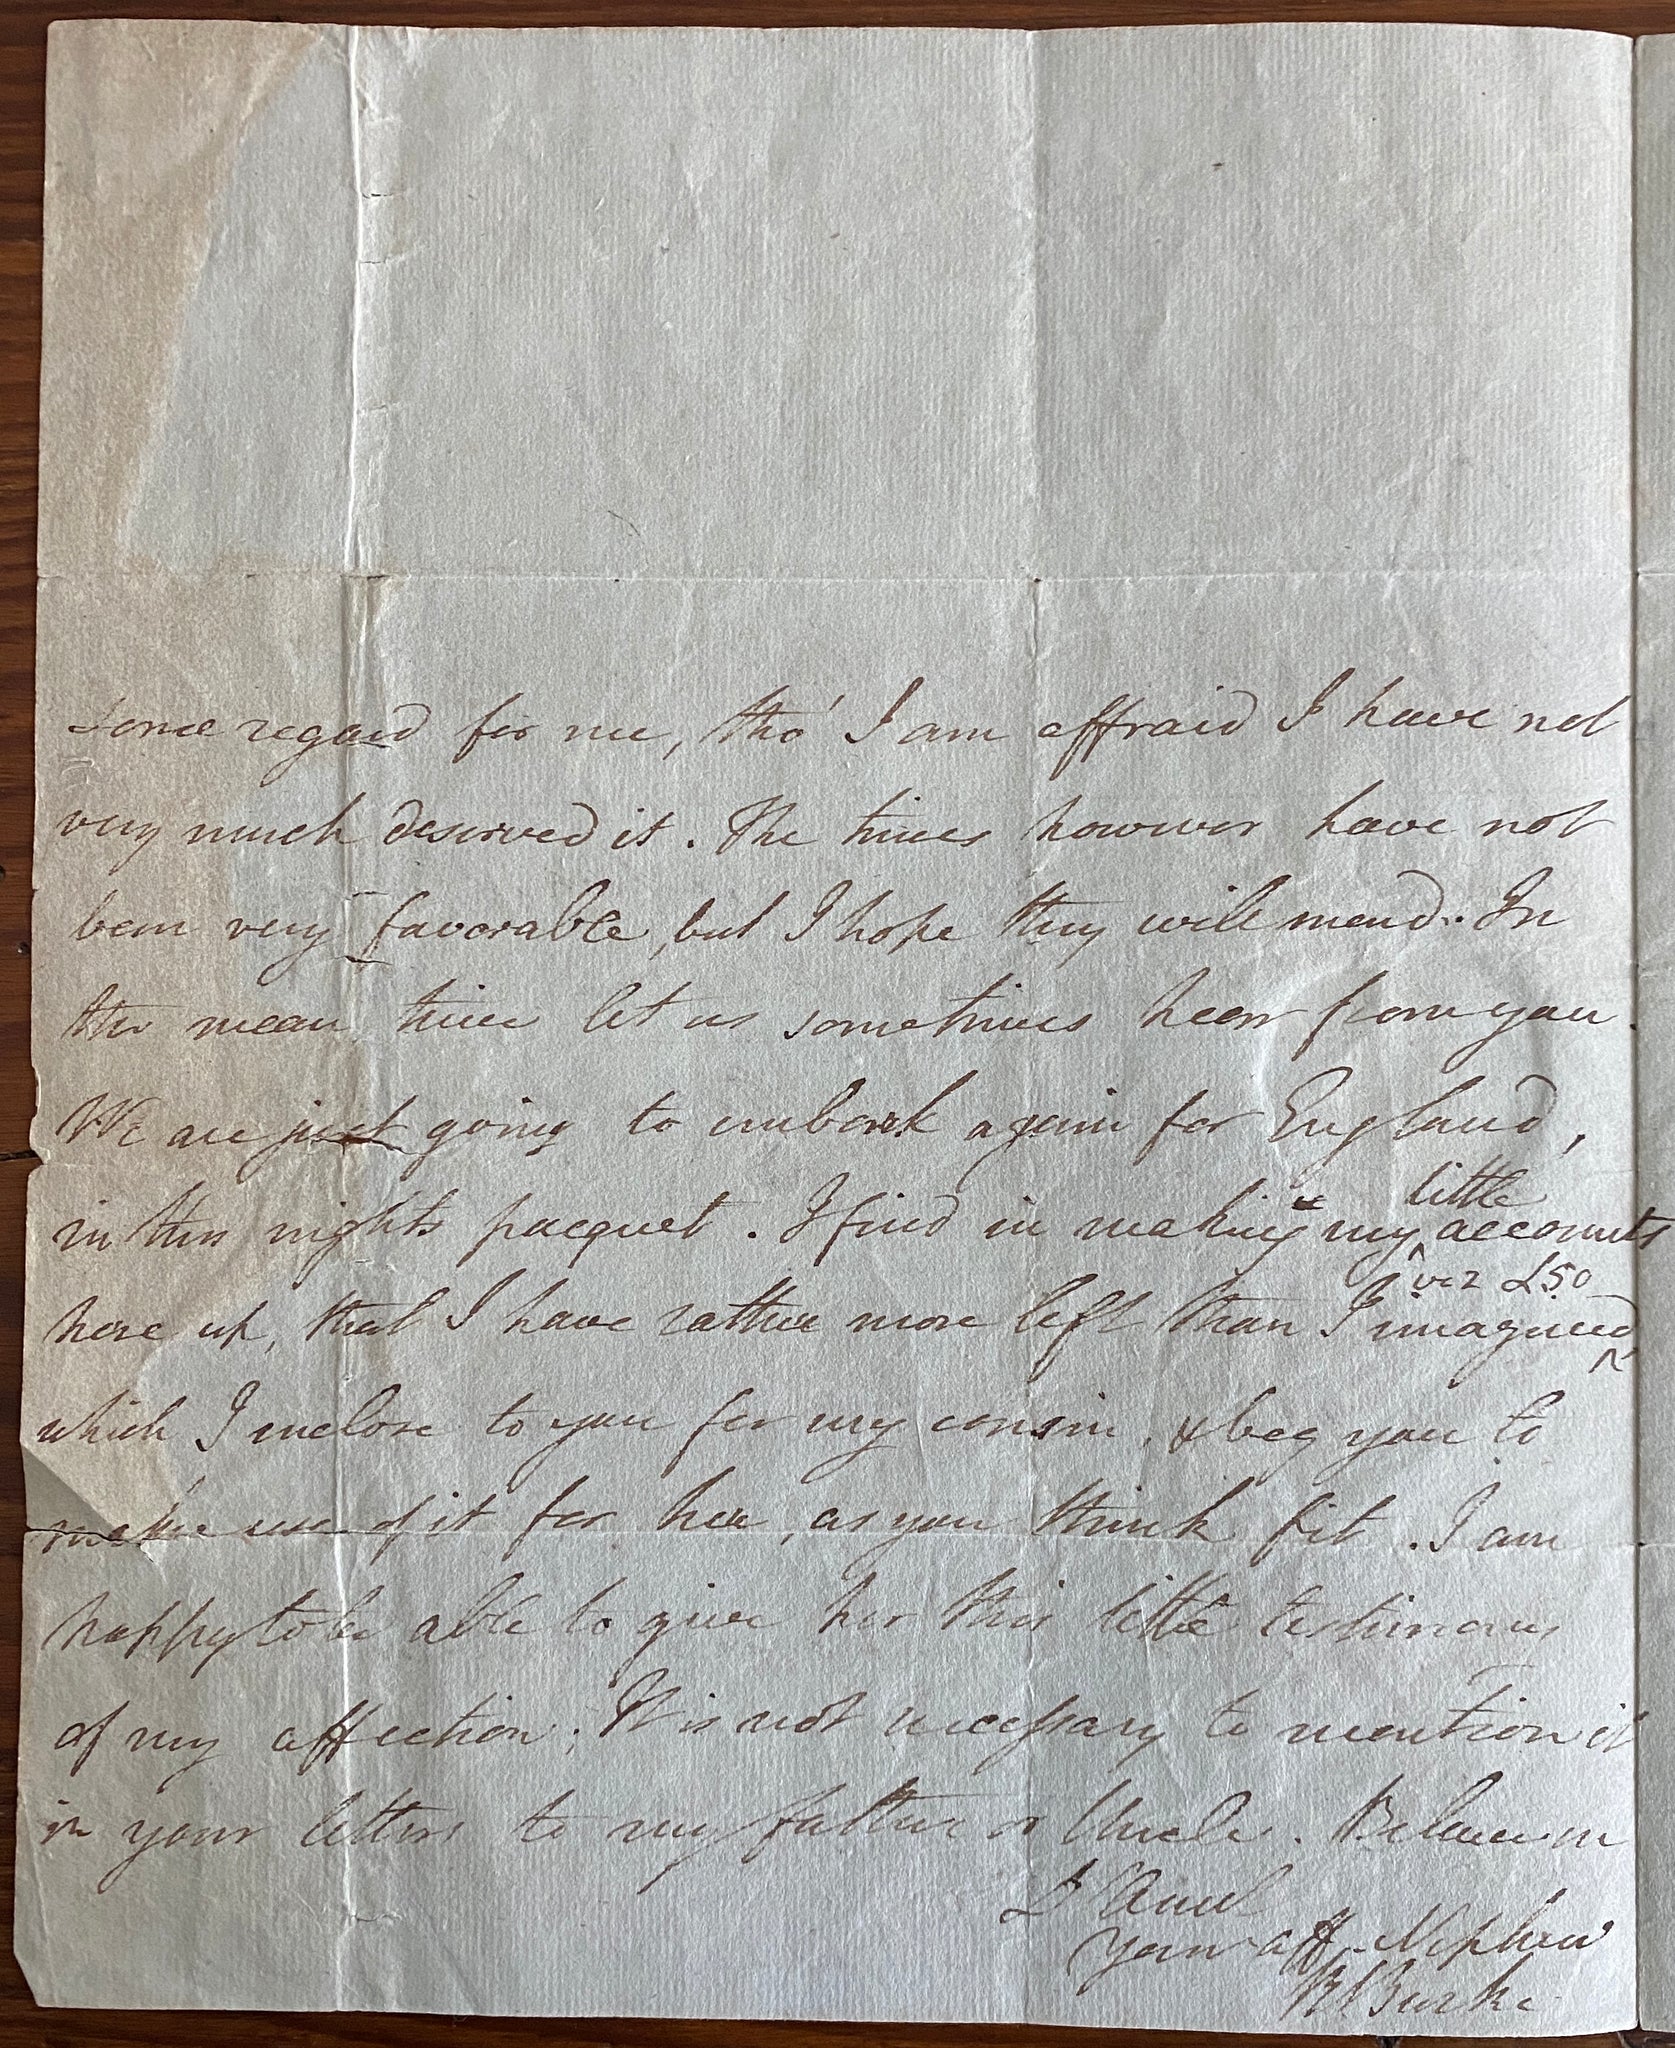 some regard for me, tho' I am affraid I have not
very much deserved it. The times however have not
been very favorable, but I hope they will mend. In
the mean time let us sometimes hear from you.
We are just going to embark again for England,
in this nights pacquet. I find in making my little accounts
here up, that I have rather more left than I imagined viz £50
which I inclose to you for my cousin, & beg you to
make use of it for her, as you think fit. I am
happy to be able to give her this little testimony
of my affection; It is not necessary to mention it
in your letters to my father or Uncle. Believe me
Dr Aunt
Your aff. Nephew
R Burke